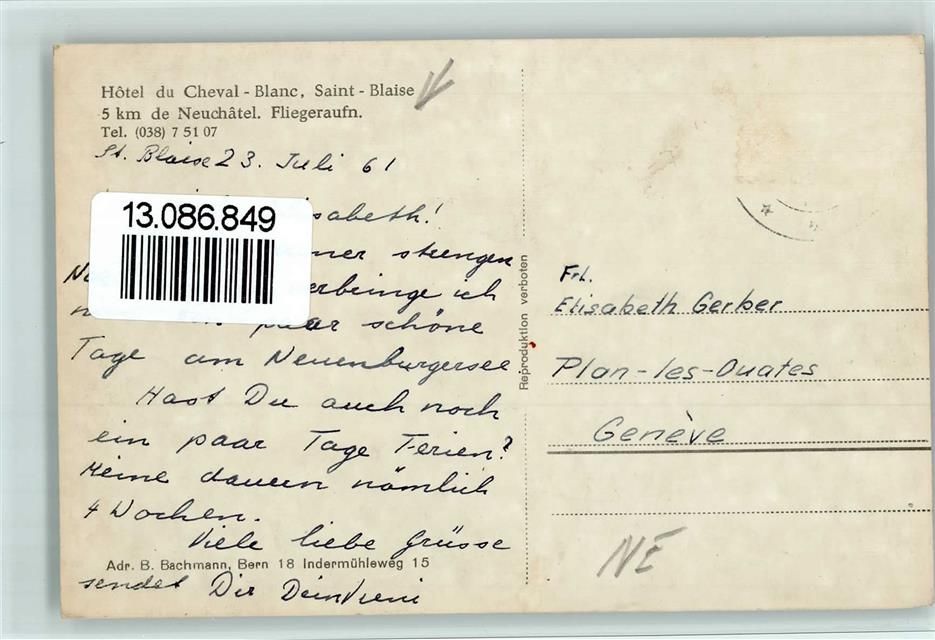 Hôtel du Cheval - Blanc, Saint - Blaise
5 km de Neuchâtel. Fliegeraufn.
Tel. (038) 7 51 07
St. Blaise 23. Juli 61
13.086.849
sabeth!
strengen
erbringe ich
paar schöne
Tage am Neuenburgersee
Hast Du auch noch
ein paar Tage Ferien?
Meine dauern nämlich
4 Wochen.
Viele liebe Grüsse
Adr. B. Bachmann, Bern 18 Indermühleweg 15
sendet Dir Dein
Reproduktion verboten
Frl.
Elisabeth Gerber
Plan-les-Ouates
Genève
NE